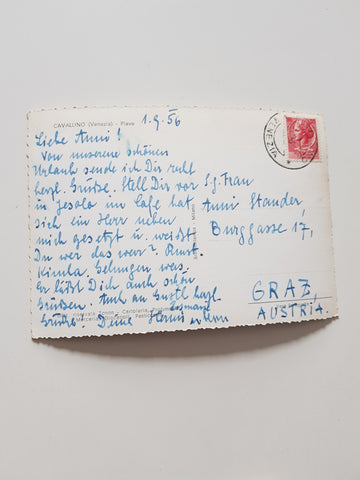 CAVALLINO (Venezia) - Piave
1.9.56
Liebe Anni!
Von unserem schönen
Urlaub sende ich Dir recht
herzl. Grüsse. Stell Dir vor
in Jesolo im Cafe hat
sich ein Herr neben
mich gesetzt u. weißt
Du wer das war?
Gelungen was.
Er läßt Dich auch schön
Grüßen. Auch an Gustl herzl.
Grüsse. Deine
S.g. Frau
Anni Stander
Burggasse 17,
GRAZ
AUSTRIA
VENEZIA